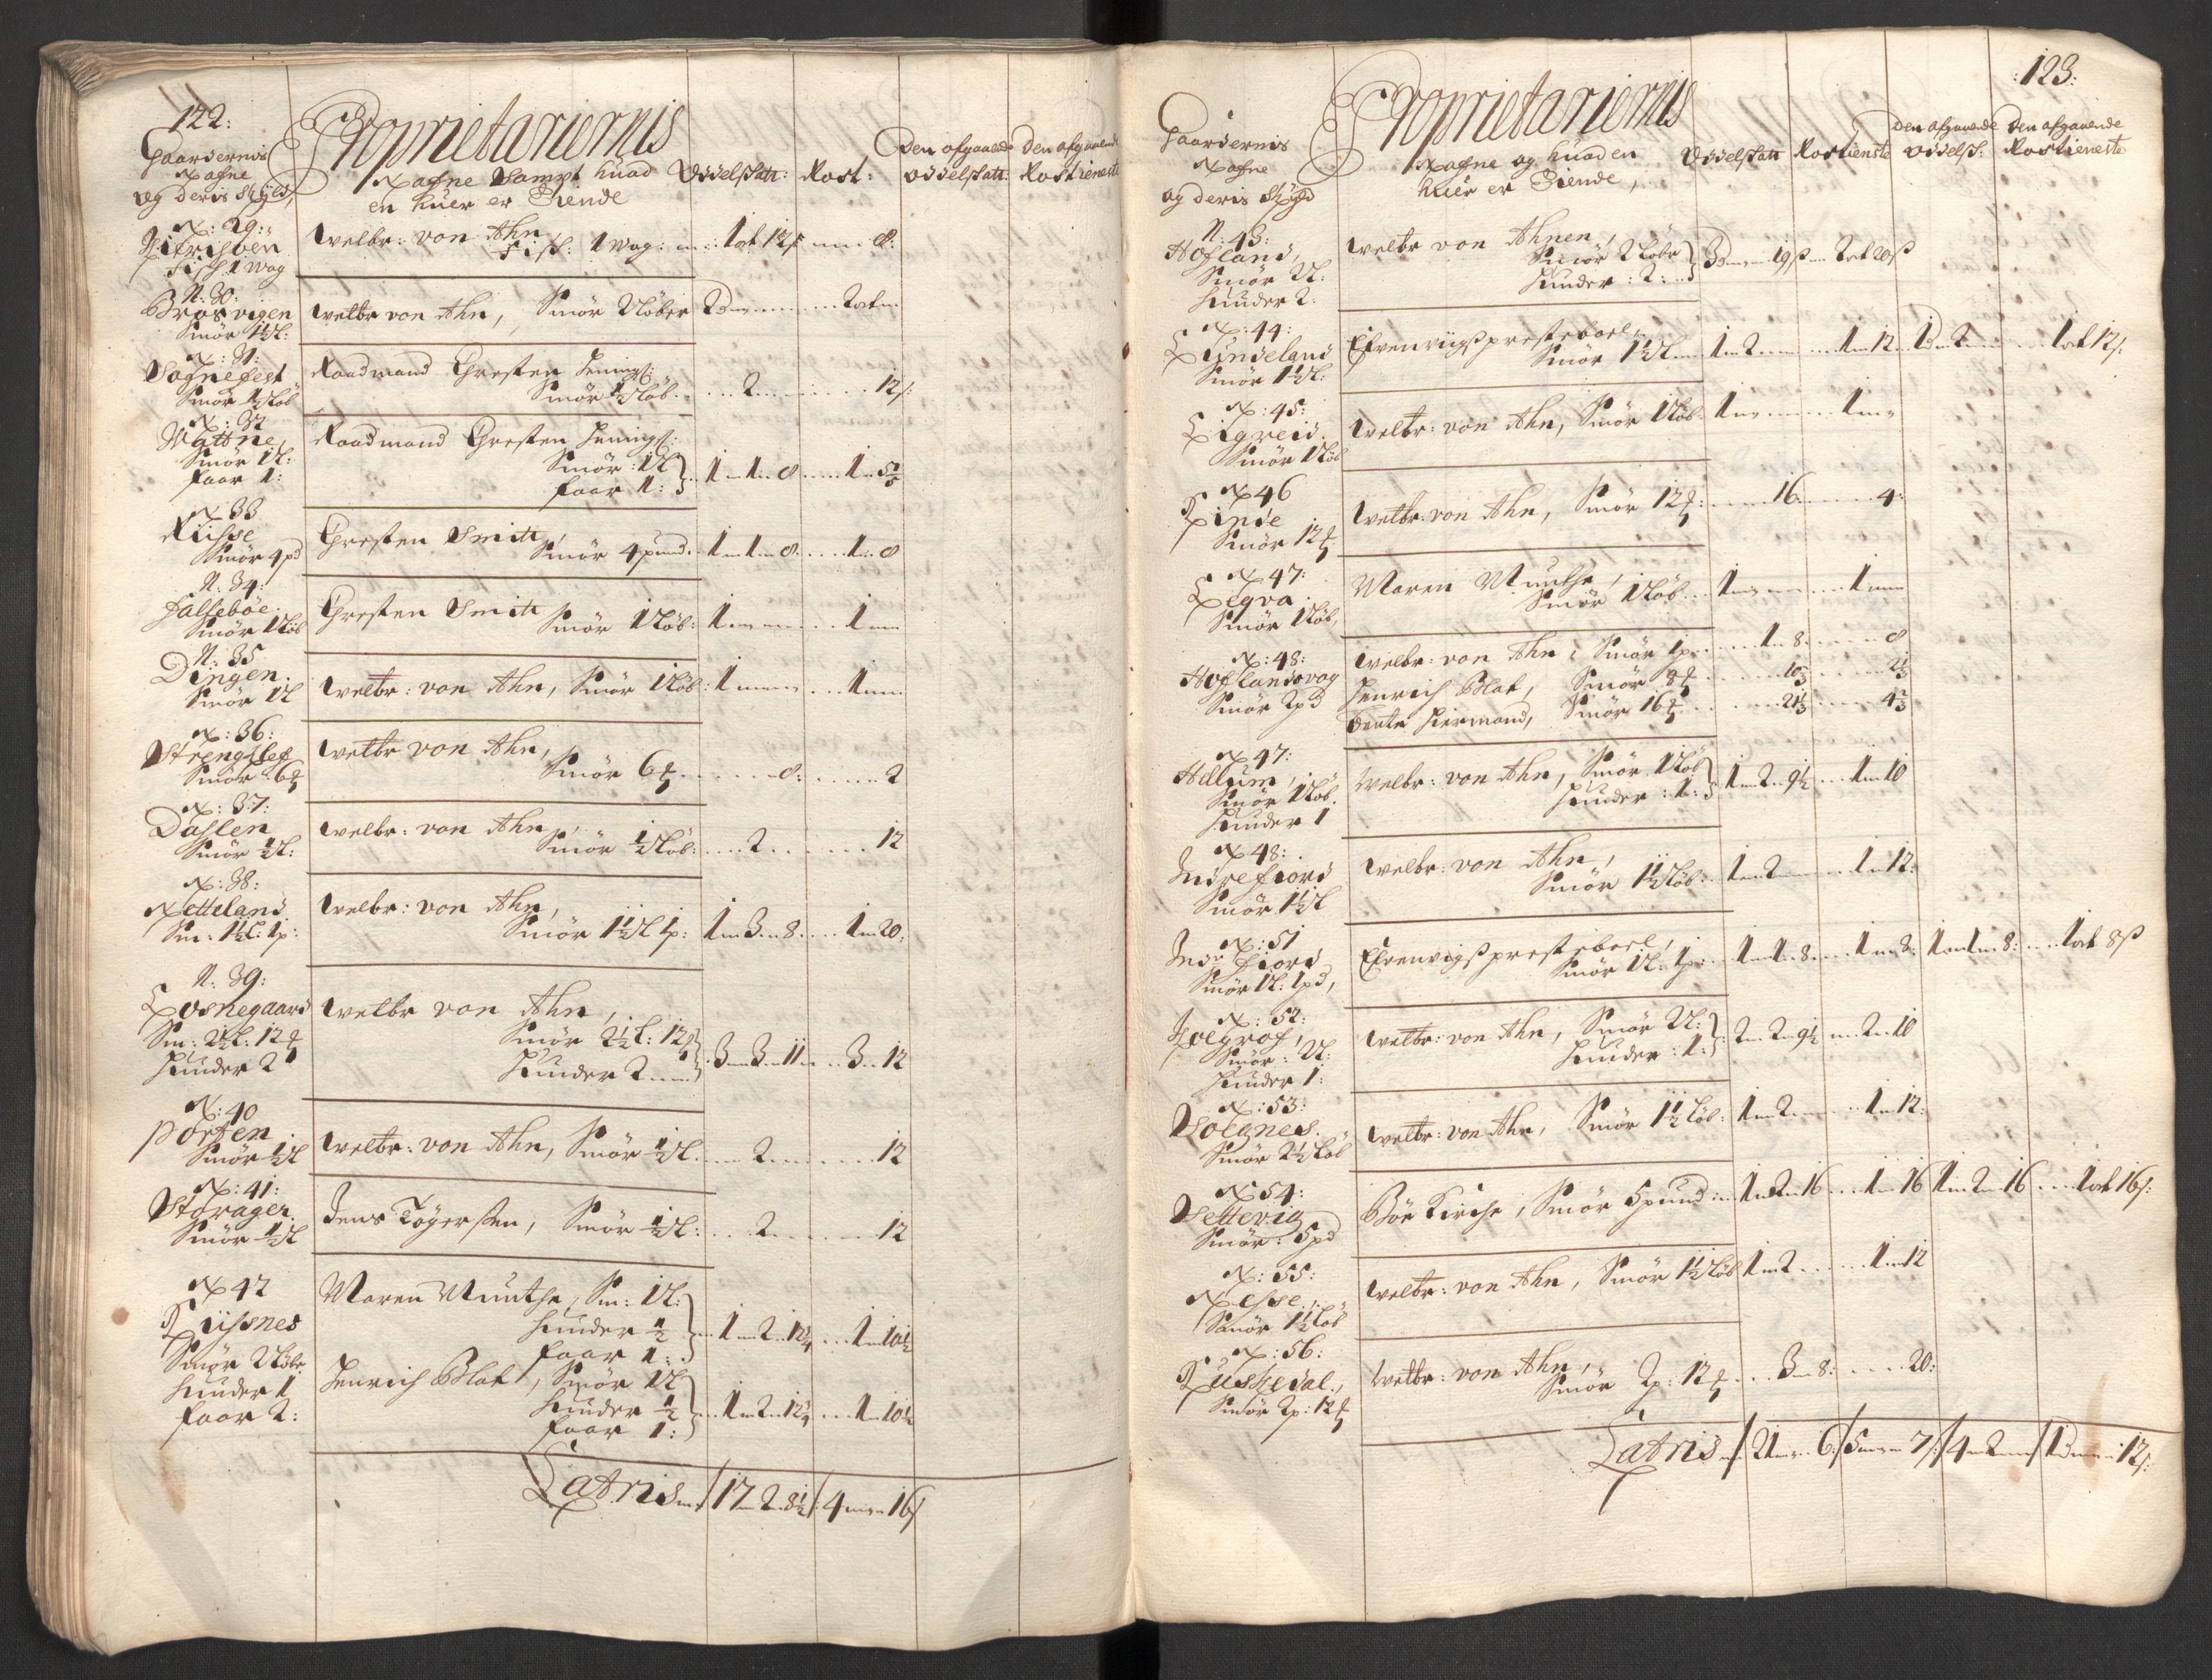 122:
Gaardernis
Nafne
og deris Skyld,
Proprietariernis
Nafne Sampt huad
en huer er Eiende
Odelskatt:
Rost:
Den afgaaende
Odelskatt:
Den afgaaende
Rostieneste
N: 29:
Fisk 1 Wog
Welbr: von Ahn
Fisk: 1 Wog: 1 ort 12 s 8:
N: 30:
Brosvigen
Smör 1½ L:
Welbr von Ahn, Smör 2 Löber 2 D 2 ort
N: 31:
Sognefest
Smör ½ Löb
Raadmand Chresten Jenings:
Smör ½ Löb 2 12 s:
N: 32
Nattne,
Smör 1 L:
faar 1:
Raadmand Chresten Jenings:
Smör: 1 L
faar 1: 1 1 8 1
N 33
Risse
Smör 4 pd
Chresten Smitt,
Smör 4 pund 1 1 8 1 8
N: 34:
Halsebøe
Smör 1 Löb
Chresten Smitt Smör 1 Löb: 1 1
N: 35
Dingen
Smör 1 L
Welbr: von Ahn, Smör 1 Löb: 1 1
N: 36:
Smör 6 ℔
Welbr von Ahn,
Smör 6 ℔ 8: 2
N: 37:
Dahlen
Smör ½ L:
Welbr: von Ahn,
Smör ½ Löb: 2 12
N: 38:
Netteland
Sm: 1½ L: 1 p:
Welbr: von Ahn,
Smör 1½ L 1 p: 1 3 8 1 20:
N: 39:
Losnegaard
Sm: 2½ L: 12 ℔
Huuder 2
Welbr von Ahn,
Smör 2½ L: 12 ℔
Huuder 2 3 3 11 3 12
N: 40
Porten
Smör ½ L
Welbr: von Ahn, Smör ½ L 2 12
N: 41:
Storager
Smör ½ L
Jens Tögersen, Smör ½ L: 2 12
N 42
Riisnes
Smör 2 Löbr
Huuder 1
faar 2:
Maren Munthe, Sm: 1 L:
Huuder ½
faar 1: 1 2 12¼ 1 10½
Henrich Blat, Smör 1 L
Huuder ½
faar 1: 1 2 12¼ 1 10½
Latris 17 2 8½ 4 16 s
:123:
Gaardernis
Nafne
og deris Skyld
Proprietariernis
Nafne og huad en
huer er Eiende,
Odelskatt
Rostieneste
Den afgaaende
Odelsk:
Den afgaaende
Rostieneste
N: 43:
Hofland,
Smör 2 L:
Huuder 2:
Welbr von Ahnen,
Smör 2 Löbr
Huuder: 2: 3 D 19 s 2 ort 20 s
N: 44:
Lundeland
Smör 1½ L:
Efvenvigs presteboel
Smör 1½ L 1 2 1 12 1 D 2 1 ort 12 s:
N: 45:
Ligreid
Smör 1 Löb
Welbr: von Ahn, Smör 1 Löb 1 1
N 46
Rinde
Smör 12 ℔
Welbr: von Ahn, Smör 12 ℔: 16 4:
N 47:
Legva
Smör 1 Löb,
Maren Munthe,
Smör 1 Löb 1 1
N: 48:
Hoflandsvog
Smör 2 pd
Welbr: von Ahn: Smör 1 p 1 8 8
Henrich Blat, Smör 8 ℔ 10⅔ 2⅔
Bente Hiermand, Smör 16 ℔ 21⅓ 4⅔
N 47:
Hellum,
Smör 1 Löb
Huuder 1
Welbr: von Ahn, Smör 1 Löb
Huuder: 1: 1 2 9½ 1 10
N 48:
Indrefiord
Smör 1½ L
Welbr: von Ahn,
Smör 1½ Löb: 1 2 1 12:
N: 51
Indr fiord
Smör 1 L: 1 pd,
Efvenvigs presteboel,
Smör 1 L: 1 p: 1 1 8 1 8: 1 1 8: 1 ort 8 s
N: 52:
Smör: 2 L:
Huuder 1:
Welbr: von Ahn, Smör 2 L:
Huuder: 1: 2 2 9½ 2 10
N: 53:
Solgnes
Smör 2½ Löb
Welbr: von Ahn, Smör 1½ Löb: 1 2 1 12:
N 54:
Settevig
Smör: 5 pd
Böe Kirche, Smör 5 pund: 1 2 16 1 16 1 2 16 1 ort 16 s:
N: 55:
Nesse,
Smör 1½ Löb
Welbr: von Ahn, Smör 1½ Löb 1 2 1 12
N: 56:
Rusledal,
Smör 2 p: 12 ℔
Welbr: von Ahn,
Smör 2 p: 12 ℔ 3 8: 20:
Latris 21 6: 5 7 s: 4 2 1 D 12 s: